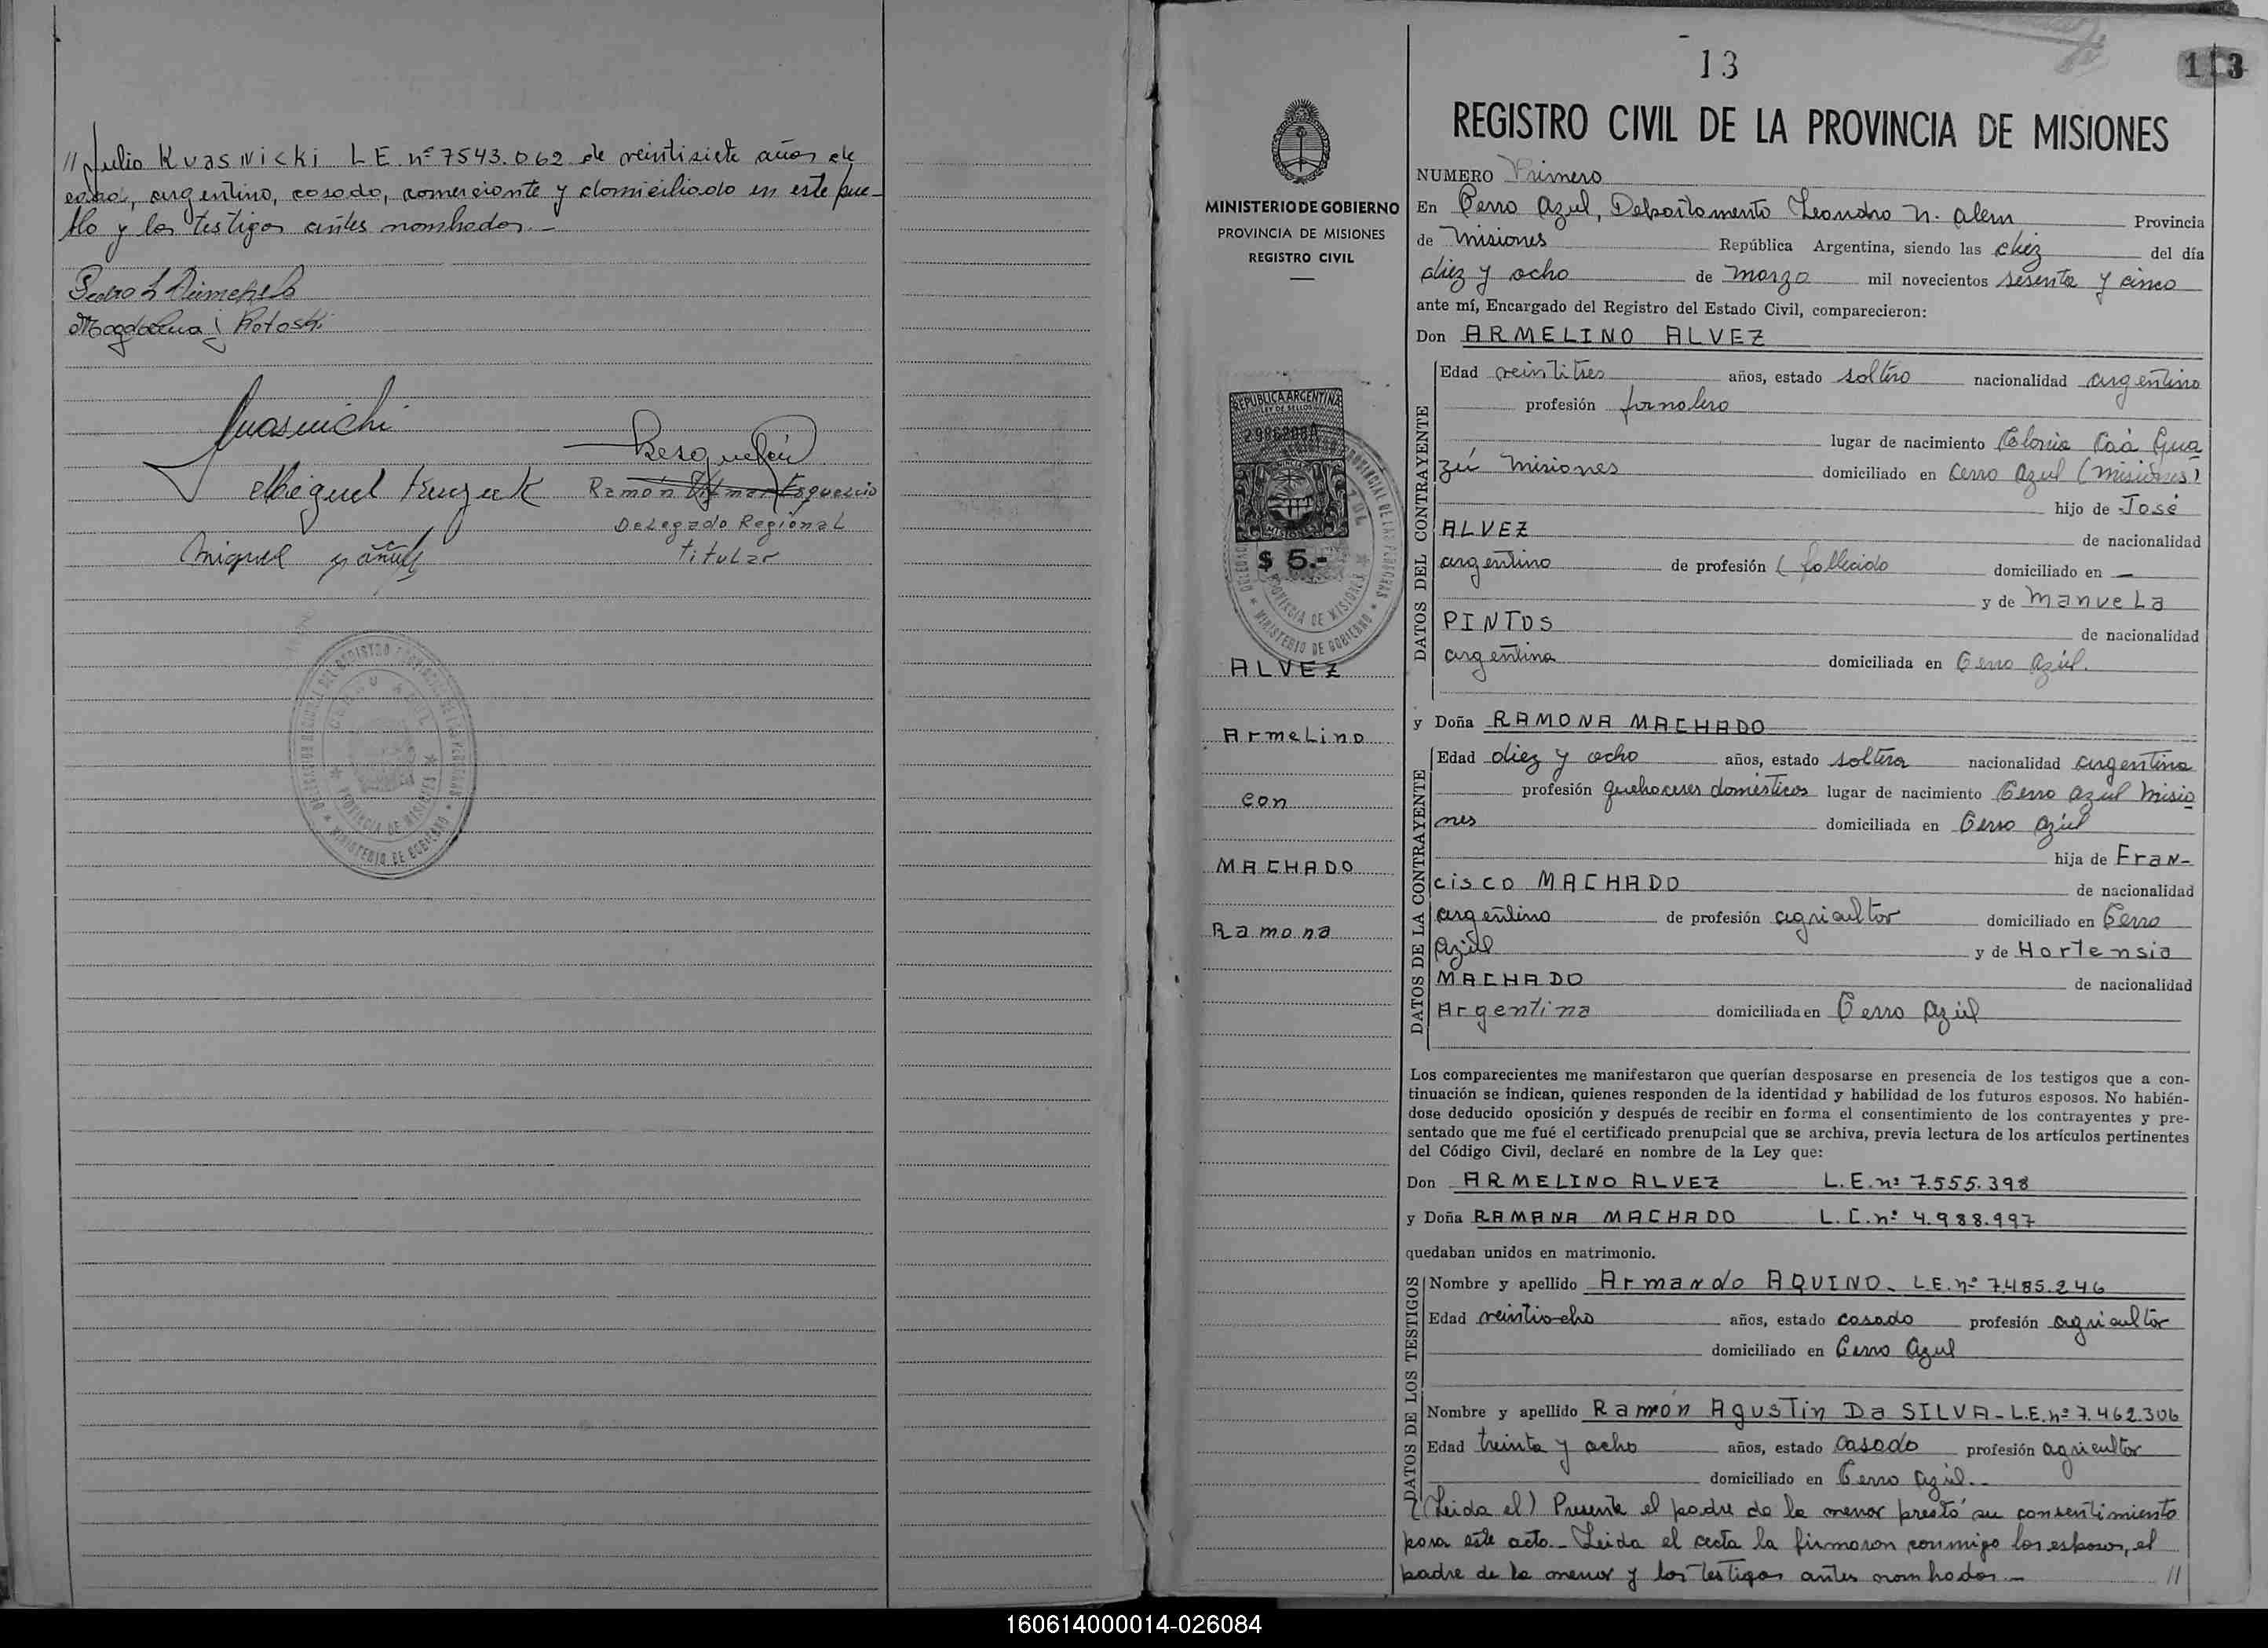 // Julio Kuasnicki L E nº 7543.062 de veintisiete años de
edad, argentino, casado, comerciante y domiciliado en este pue-
blo y los testigos antes nombrados.-
Miguel
Miguel Yañuk
Ramón
Delegado Regional
titular
13
113
REGISTRO CIVIL DE LA PROVINCIA DE MISIONES
MINISTERIO DE GOBIERNO
PROVINCIA DE MISIONES
REGISTRO CIVIL
NUMERO Primero
En Cerro Azul, Departamento Leandro N. Alem Provincia
de Misiones República Argentina, siendo las diez del día
diez y ocho de Marzo mil novecientos sesenta y cinco
ante mí, Encargado del Registro del Estado Civil, comparecieron:
Don ARMELINO ALVEZ
DATOS DEL CONTRAYENTE
Edad veintitres años, estado soltero nacionalidad argentino
profesión jornalero
lugar de nacimiento Colonia Caá Gua
zú Misiones domiciliado en Cerro Azul (Misiones)
hijo de José
ALVEZ de nacionalidad
argentino de profesión ( fallecido domiciliado en —
y de Manuela
PINTOS de nacionalidad
argentina domiciliada en Cerro Azul.
REPUBLICA ARGENTINA
LEY DE SELLOS
$ 5.-
PROVINCIA DE MISIONES
MINISTERIO DE GOBIERNO
ALVEZ
Armelino
con
MACHADO
Ramona
y Doña RAMONA MACHADO
DATOS DE LA CONTRAYENTE
Edad diez y ocho años, estado soltera nacionalidad argentina
profesión quehaceres domésticos lugar de nacimiento Cerro Azul Misio
nes domiciliada en Cerro Azul
hija de Fran-
cisco MACHADO de nacionalidad
argentino de profesión agricultor domiciliado en Cerro
Azul y de Hortensia
MACHADO de nacionalidad
Argentina domiciliada en Cerro Azul
Los comparecientes me manifestaron que querían desposarse en presencia de los testigos que a con-
tinuación se indican, quienes responden de la identidad y habilidad de los futuros esposos. No habién-
dose deducido oposición y después de recibir en forma el consentimiento de los contrayentes y pre-
sentado que me fué el certificado prenupcial que se archiva, previa lectura de los artículos pertinentes
del Código Civil, declaré en nombre de la Ley que:
Don ARMELINO ALVEZ L.E. nº 7.555.398
y Doña RAMANA MACHADO L.C. nº 4.988.997
quedaban unidos en matrimonio.
DATOS DE LOS TESTIGOS
Nombre y apellido Armando AQUINO - L.E. nº 7.485.246
Edad veintiocho años, estado casado profesión agricultor
domiciliado en Cerro Azul
Nombre y apellido Ramón Agustin Da SILVA - L.E. nº 7.462.306
Edad treinta y ocho años, estado casado profesión agricultor
domiciliado en Cerro Azul.-
(Leida el) Presente el padre de la menor prestó su consentimiento
para este acto.- Leida el acta la firmaron conmigo los esposos, el
padre de la menor y los testigos antes nombrados.- //
160614000014-026084